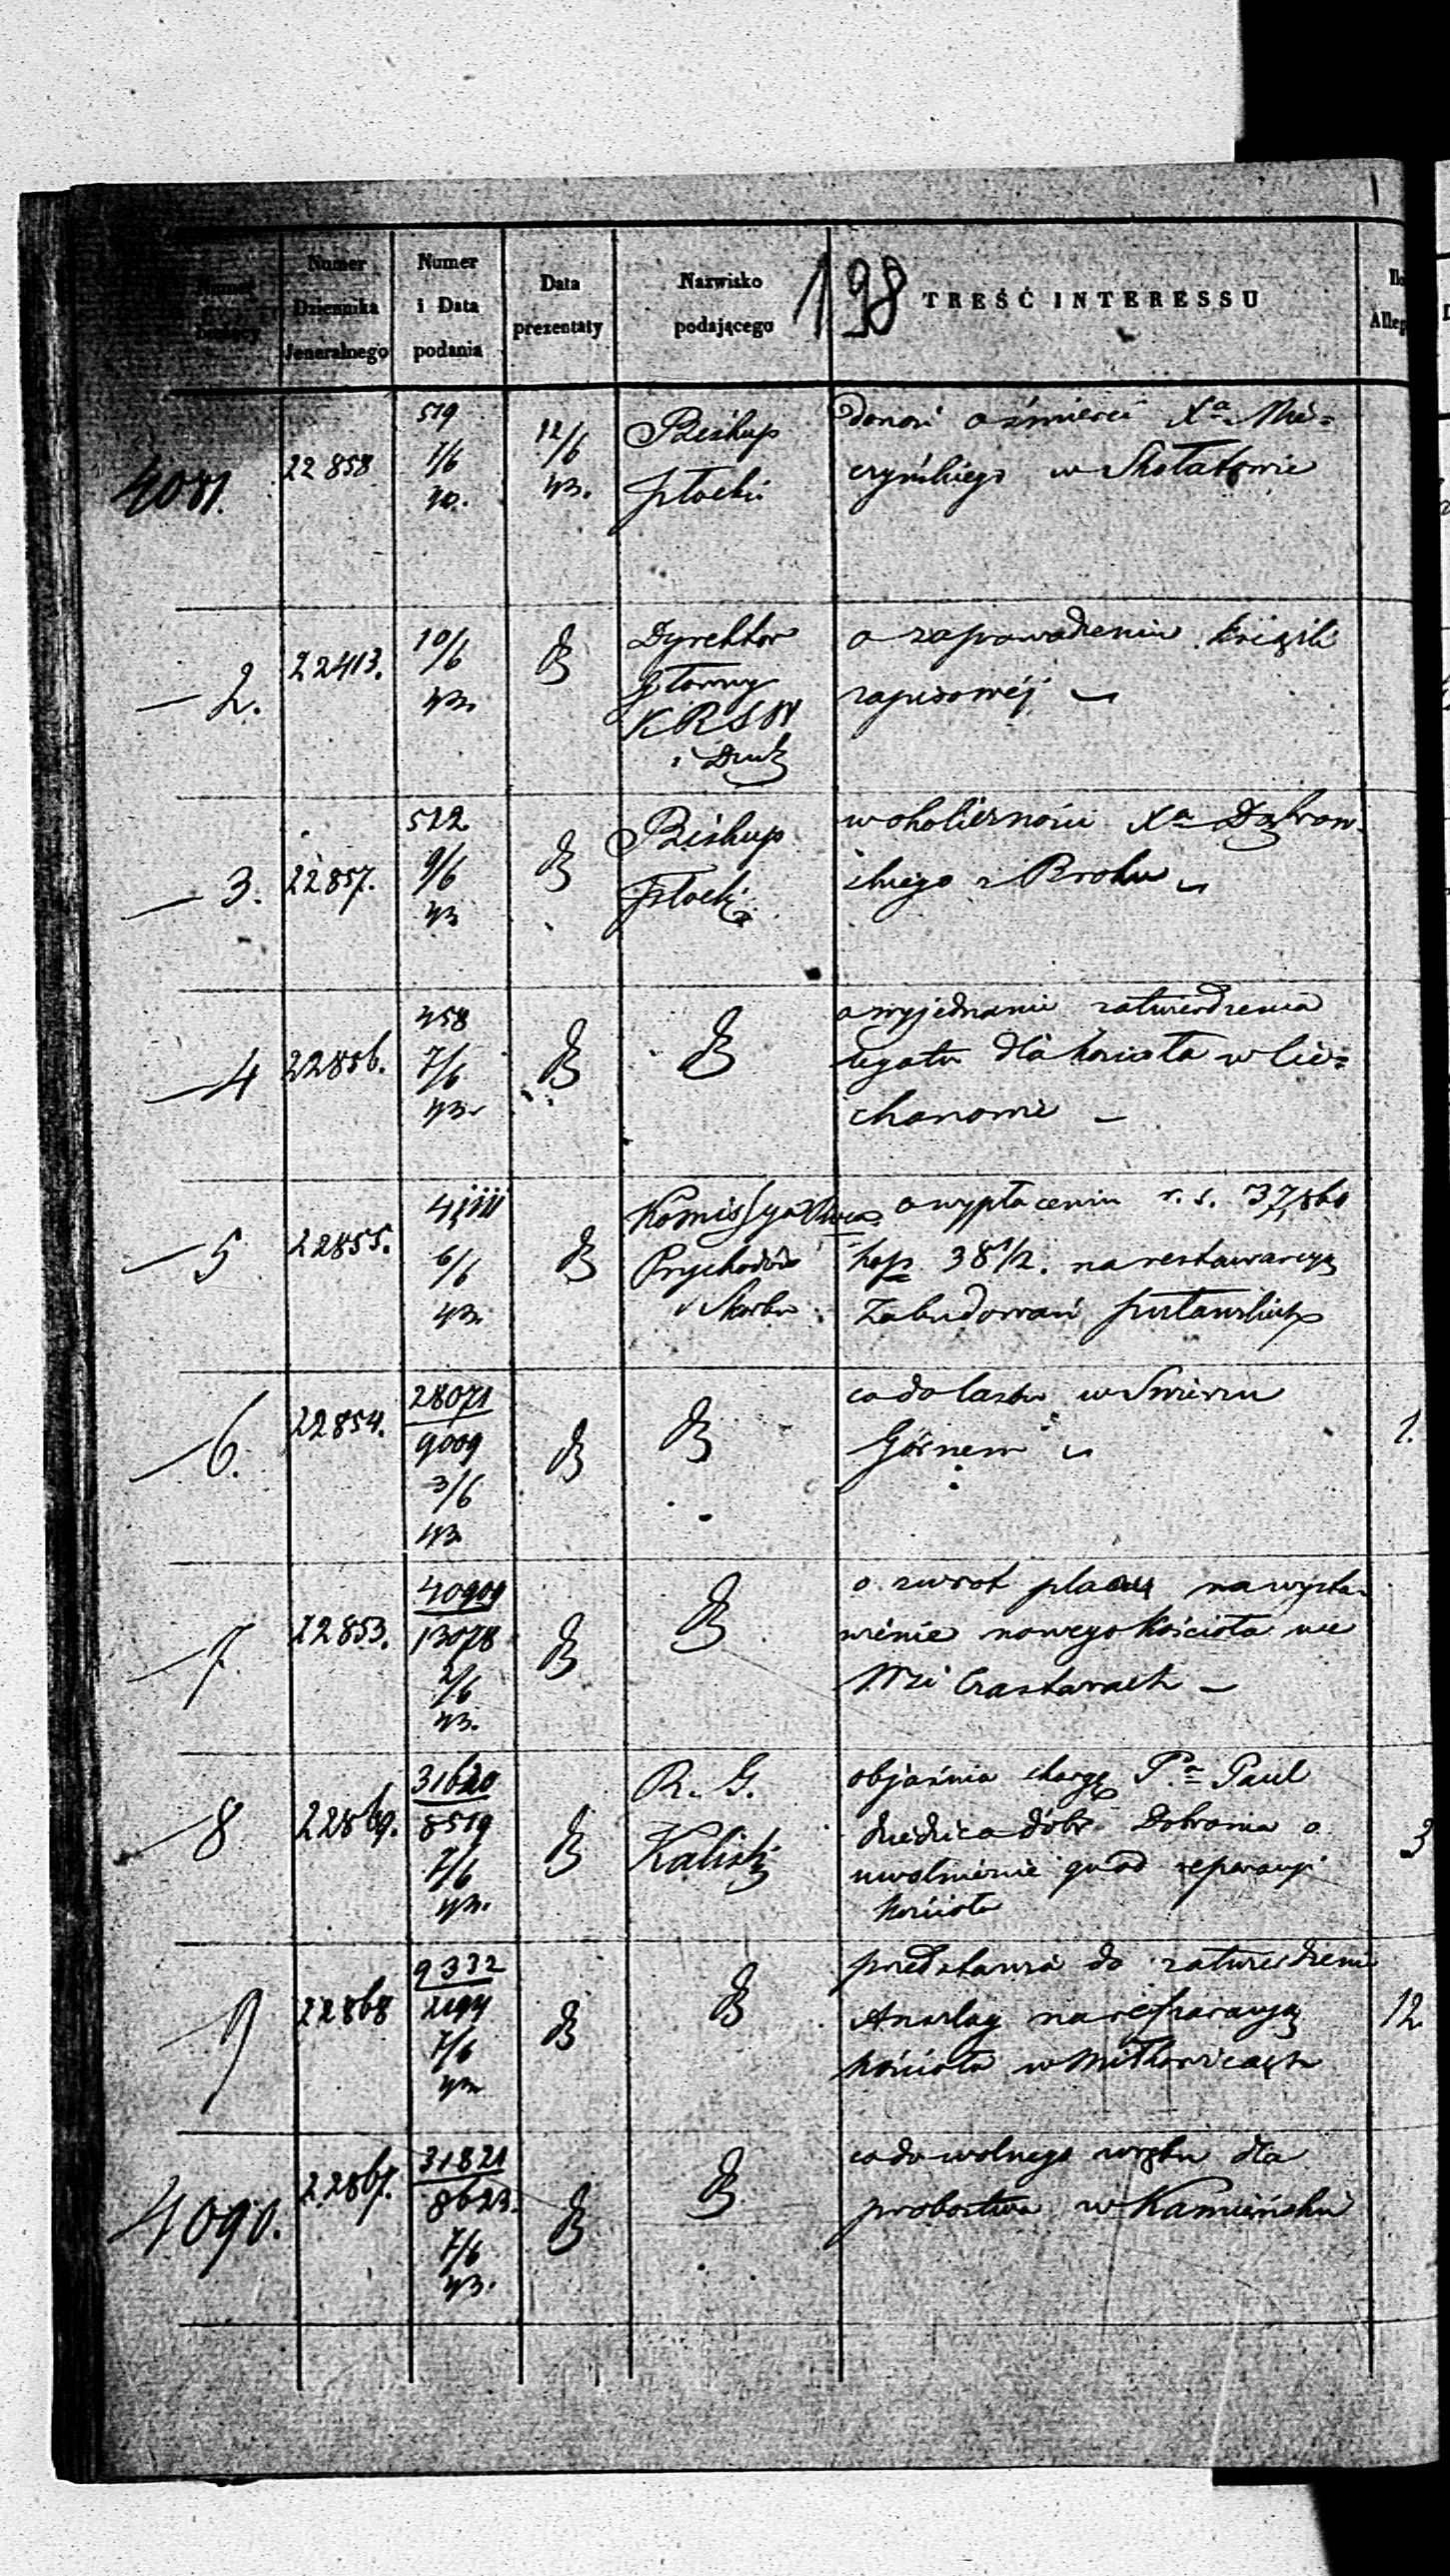 Numer
bieżący
Numer
Dziennika
Jeneralnego
Numer
i Data
podania
Data
prezentaty
Nazwisko
podającego
198
TREŚĆ INTERESSU
4081.
22858
519
7/6
43.
12/6
43.
Biskup
płocki
donosi o śmierci Xa Mie=
czyńskiego w Skołatowie
2.
22413.
10/6
43.
Dyrektor
Główny
KRSW
i Duch
o zaprowadzeniu książki
zapisowéj
3.
22857.
522
9/6
43
Biskup
Płocki
w okoliczności Xa Dąbrow
skiego z Broku
4
22856.
458
7/6
43.
o wyjednanie zatwierdzenia
legatu dla kościoła w Cie=
chanowie
5
22855.
6/6
43.
Komissya
Przychodów
i Skarbu
o wypłaceniu r. s. 37,860
kop 38 1/2. na restauracyą
Zabudowań pułtuskich
6.
22854.
28071
9009
3/6
43
co do lasku w
Górnem
1.
7
22853.
40909
13078
2/6
43.
o zwrot placu na wysta-
wienie nowego kościoła we
Wsi Czastarach
8
22869.
31620
8519
7/6
43.
R. G.
Kaliski
objaśnia skargę Pa Paul
dziedzica dóbr o
uwolnienie go od reparacyi
kościoła
3
9
22868
9332
2194
7/6
43
przedstawia do zatwierdzeni
Anszlag na reparacyą
kościoła w Miłkowicach
12
4090.
22867.
31821
8623.
7/6
43.
co do wolnego wrębu dla
probostwa w Kamieńsku